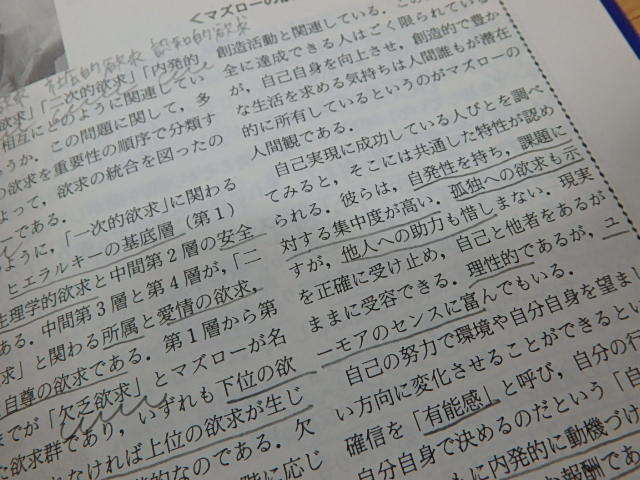 <マズローの
社会的欲求 親和的欲求
欲求」「二次的欲求」「内発的
相互にどのように関連してい
うか．この問題に関して，多
の欲求を重要性の順序で分類す
よって，欲求の統合を図ったの
ーである．
ように，「一次的欲求」に関わる
ヒエラルキーの基底層（第1）
生理学的欲求と中間第2層の安全
ある．中間第3層と第4層が，「二
求」と関わる所属と愛情の欲求，
自尊の欲求である．第1層から第
までが「欠乏欲求」とマズローが名
欲求群であり，いずれも下位の欲
なければ上位の欲求が生じ
的なのである．欠
階に応じ
創造活動と関連している．この
全に達成できる人はごく限られている
が，自己自身を向上させ，創造的で豊か
な生活を求める気持ちは人間誰もが潜在
的に所有しているというのがマズローの
人間観である．
自己実現に成功している人びとを調べ
てみると，そこには共通した特性が認め
られる．彼らは，自発性を持ち，課題に
対する集中度が高い．孤独への欲求も示
すが，他人への助力も惜しまない．現実
を正確に受け止め，自己と他者をあるが
ままに受容できる．理性的であるが，ユ
ーモアのセンスに富んでもいる．
自己の努力で環境や自分自身を望ま
い方向に変化させることができるとい
確信を「有能感」と呼び，自分の行
自分自身で決めるのだという「自
もに内発的に動機づけ
報酬であ